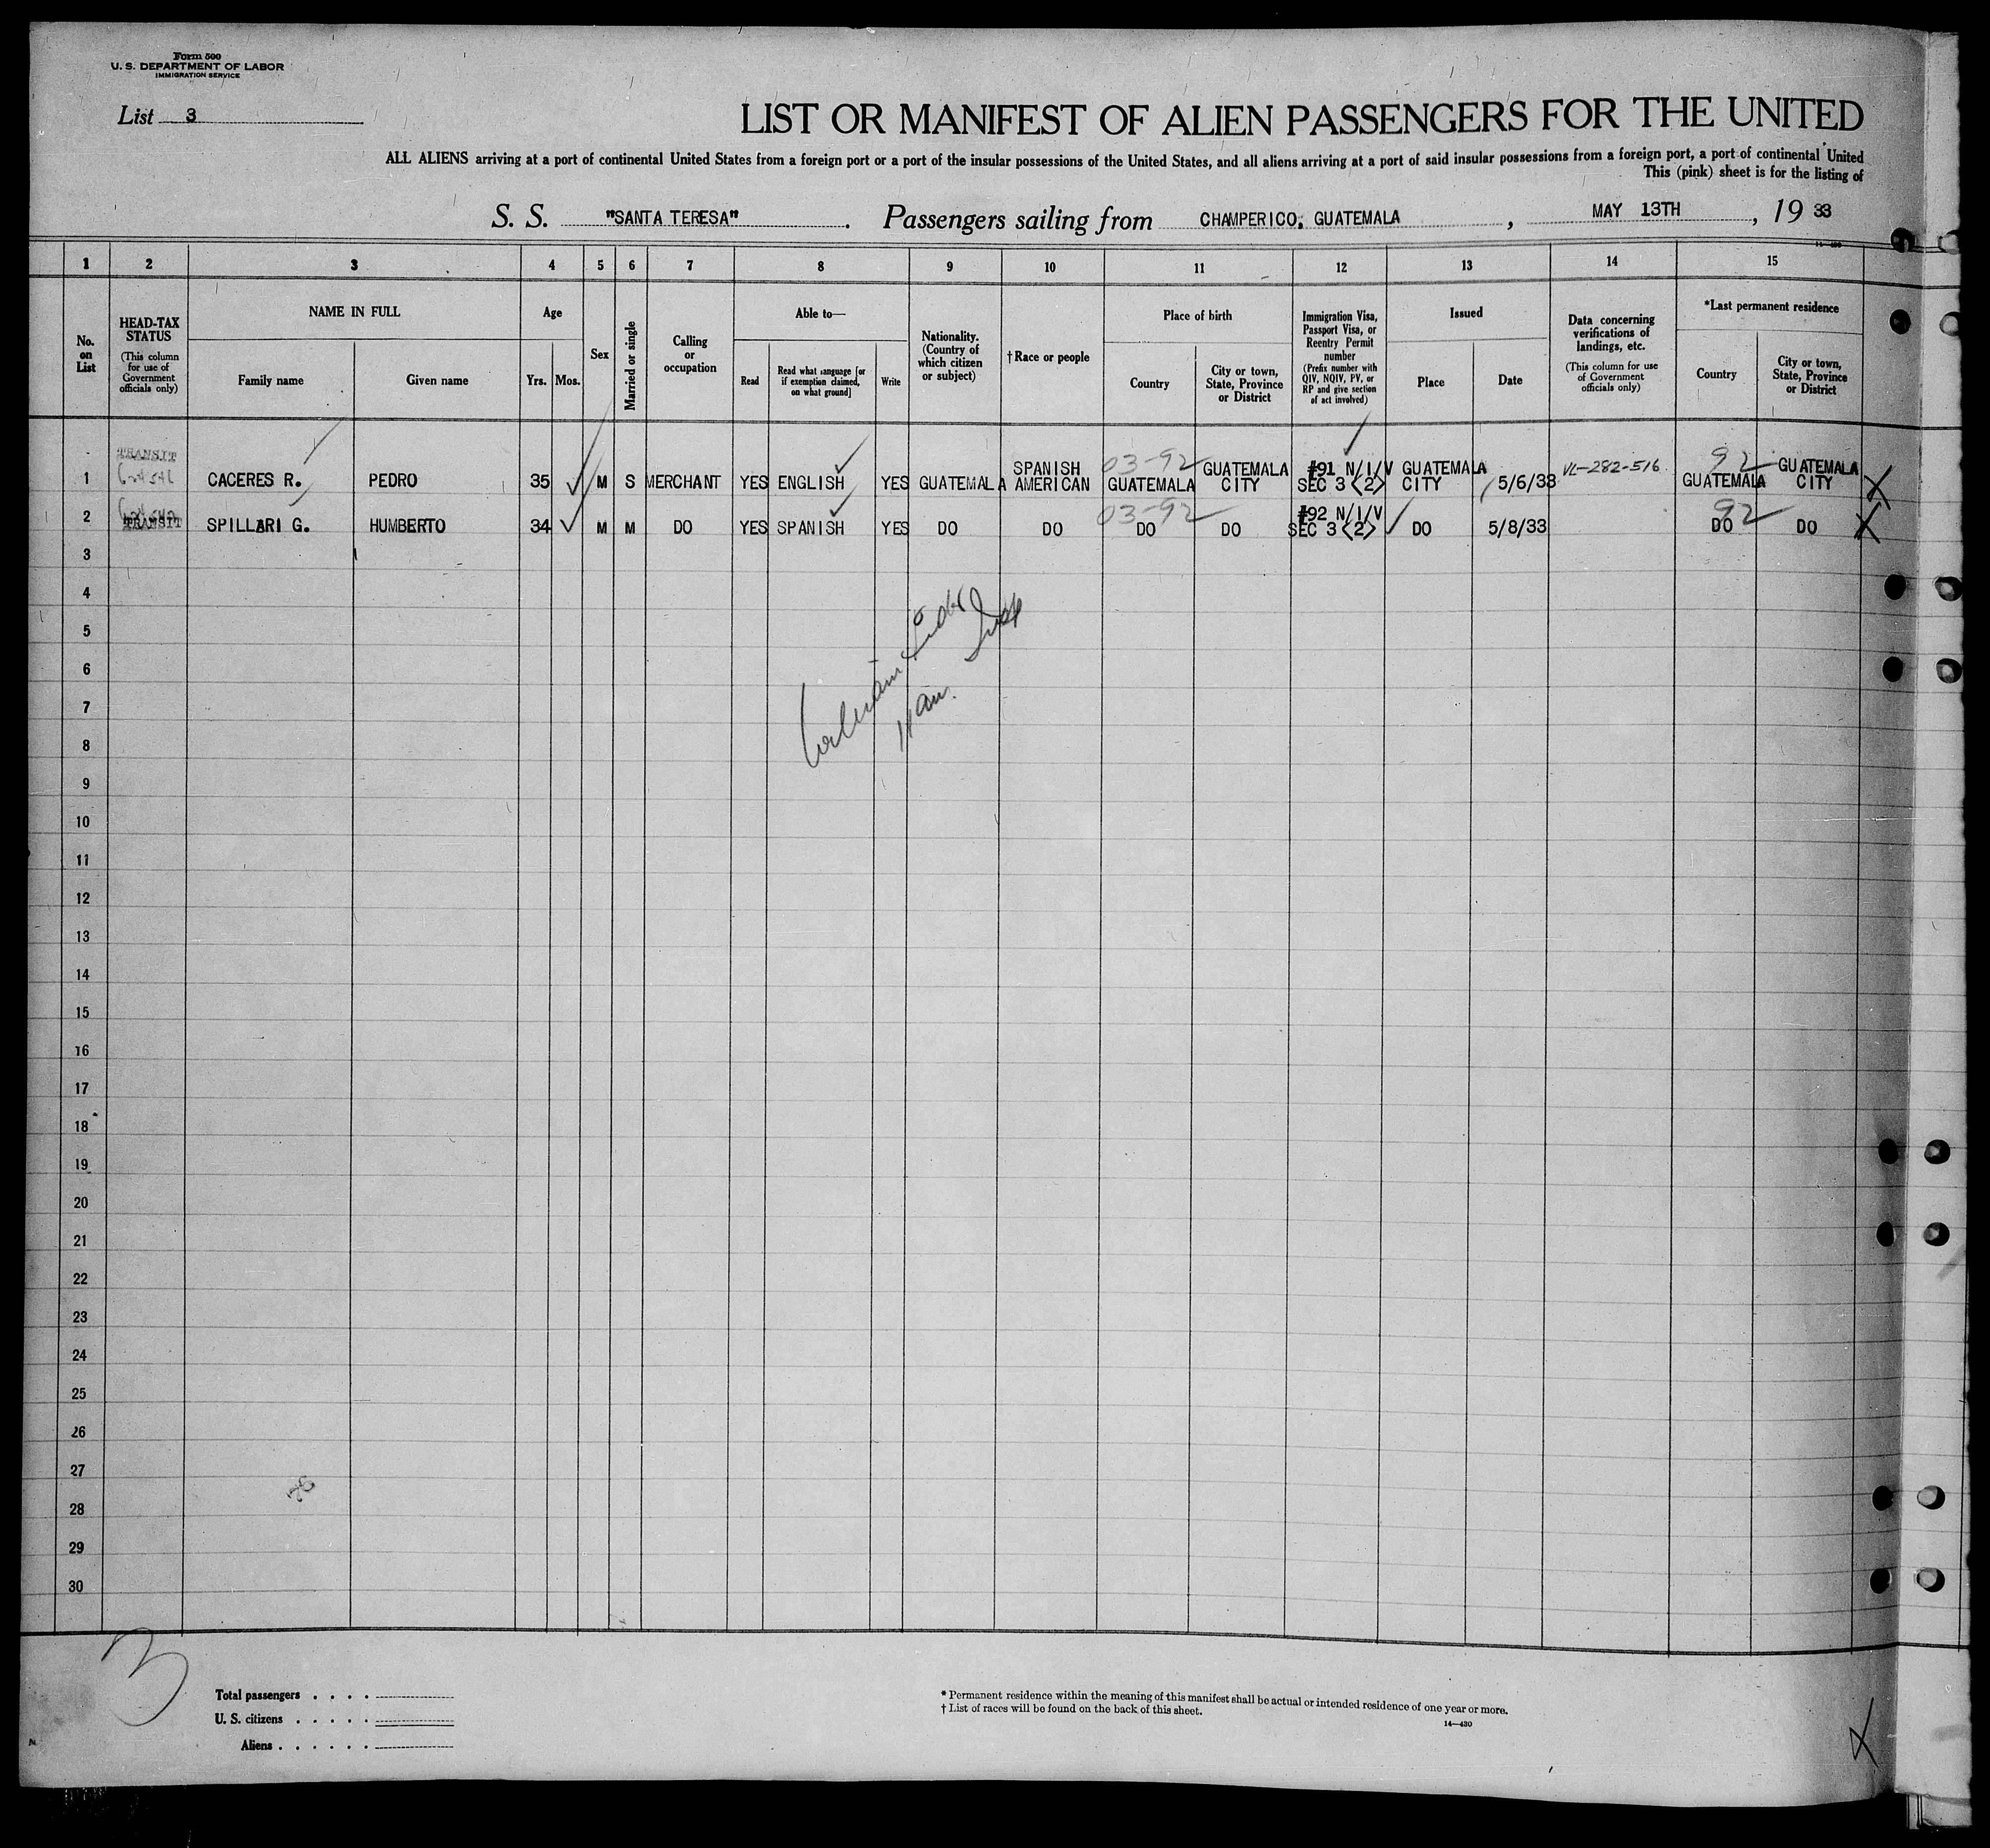 Form 500
U. S. DEPARTMENT OF LABOR
IMMIGRATION SERVICE
List 3
LIST OR MANIFEST OF ALIEN PASSENGERS FOR THE UNITED
ALL ALIENS arriving at a port of continental United States from a foreign port or a port of the insular possessions of the United States, and all aliens arriving at a port of said insular possessions from a foreign port, a port of continental United
This (pink) sheet is for the listing of
S. S. "SANTA TERESA". Passengers sailing from CHAMPERICO, GUATEMALA, MAY 13TH, 19 33
1 2 3 4 5 6 7 8 9 10 11 12 13 14 15
No. on List
HEAD-TAX STATUS
(This column for use of Government officials only)
NAME IN FULL
Family name
Given name
Age
Yrs.
Mos.
Sex
Married or single
Calling or occupation
Able to—
Read
Read what language [or if exemption claimed, on what ground]
Write
Nationality. (Country of which citizen or subject)
†Race or people
Place of birth
Country
City or town, State, Province or District
Immigration Visa, Passport Visa, or Reentry Permit number
(Prefix number with QIV, NQIV, PV, or RP and give section of act involved)
Issued
Place
Date
Data concerning verifications of landings, etc.
(This column for use of Government officials only)
*Last permanent residence
Country
City or town, State, Province or District
TRANSIT
03-92
VL-282-516
92
1 CACERES R. PEDRO 35 M S MERCHANT YES ENGLISH YES GUATEMALA SPANISH AMERICAN GUATEMALA GUATEMALA CITY #91 N/I/V SEC 3 (2) GUATEMALA CITY 5/6/33 GUATEMALA GUATEMALA CITY X
TRANSIT
03-92
92
2 SPILLARI G. HUMBERTO 34 M M DO YES SPANISH YES DO DO DO DO #92 N/I/V SEC 3 (2) DO 5/8/33 DO DO X
3
4
5
6
7
8
9
10
11
12
13
14
15
16
17
18
19
20
21
22
23
24
25
26
27
28
29
30
11 am.
3
Total passengers . . . .
U. S. citizens . . . . .
Aliens . . . . . .
* Permanent residence within the meaning of this manifest shall be actual or intended residence of one year or more.
† List of races will be found on the back of this sheet.
14—430
X